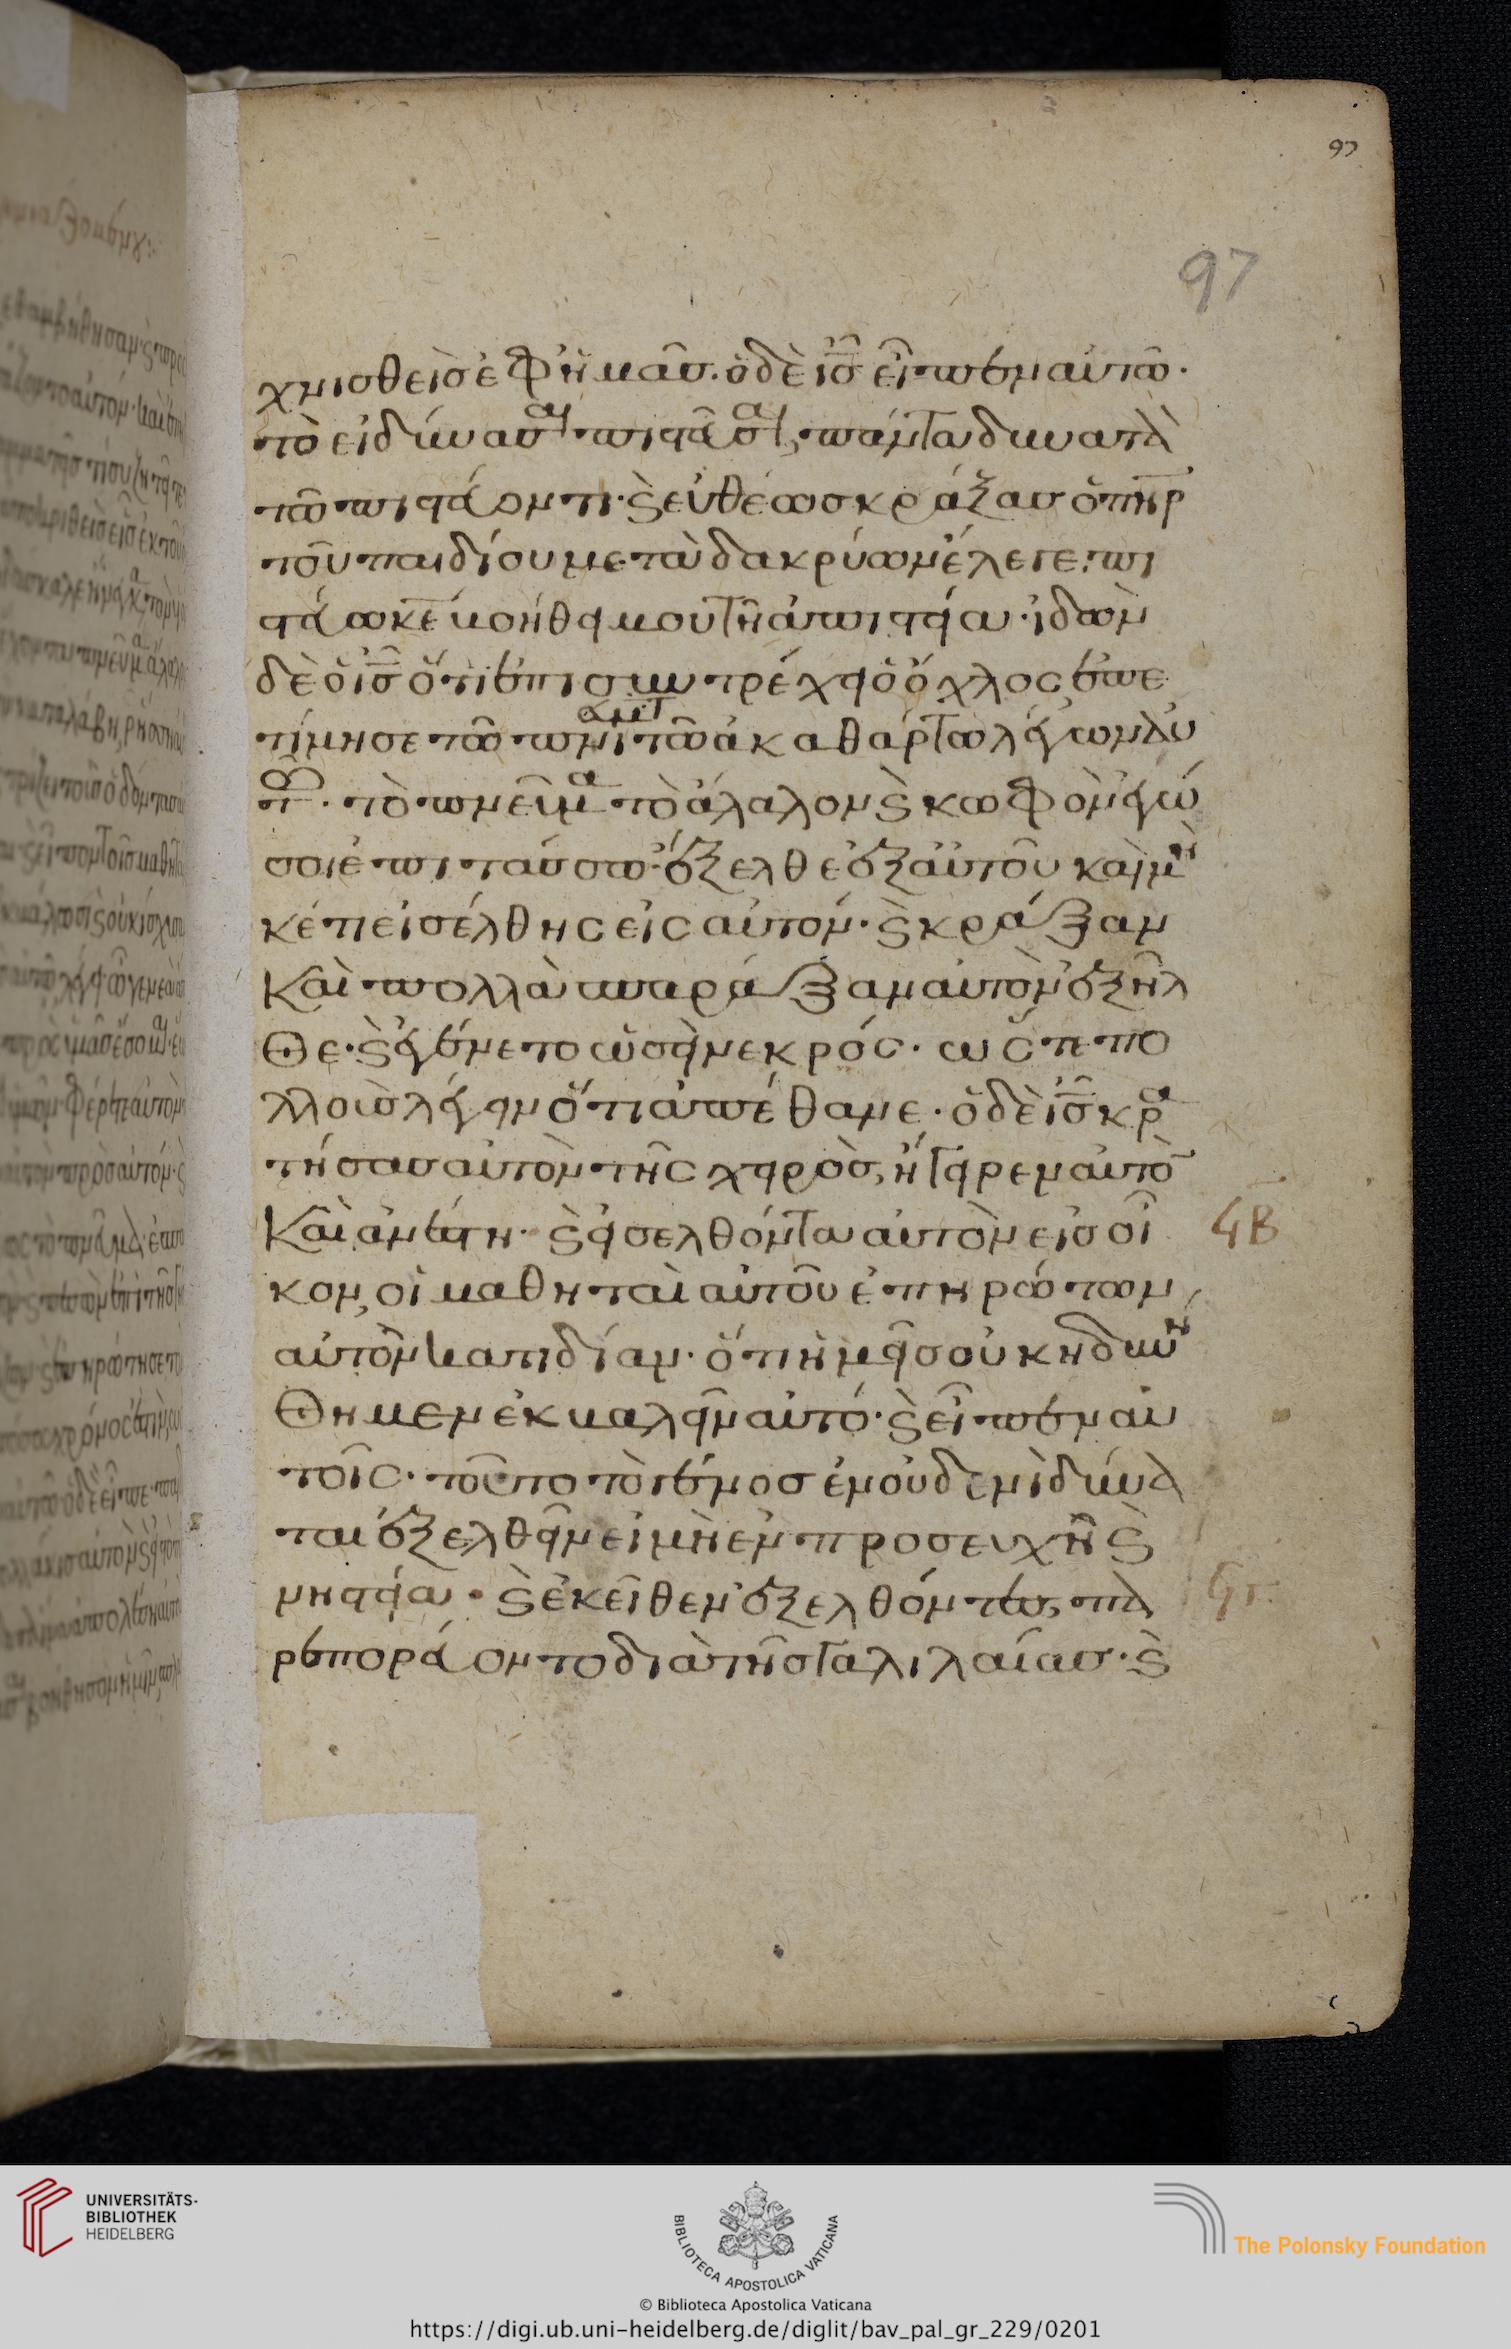 97
97
χνισθεὶς ἐφ' ἡμᾶς. ὁ δὲ ις εἶπεν αὐτῶ.
τὸ εἰ δύνασαι πιστεῦσαι, πάντα δυνατὰ
τῶ πιστεύοντι. ϗ εὐθέως κράξας ὁ πηρ
τοῦ παιδίου μετὰ δακρύων ἔλεγε· πι
στεύω κε βοήθει μου τῆ ἀπιστία. ἰδὼν
δὲ ὁ ις ὅτι ἐπισυντρέχει ὁ ὄχλος ἐπε
τίμησε τῶ πνι τῶ ἀκαθάρτω λέγων αὐ
τῶ. τὸ πνεῦμα τὸ ἄλαλον ϗ κωφὸν ἐγώ
σοι ἐπιτάσσω· ἔξελθε ἐξ αὐτοῦ καὶ μη
κέτι εἰσέλθης εἰς αὐτόν. ϗ κράξαν
Καὶ πολλὰ σπαράξαν αὐτὸν ἐξῆλ
θε. ϗ ἐγένετο ὡσεὶ νεκρός. ὥστε πο
λλοὺς λέγειν ὅτι ἀπέθανε. ὁ δὲ ις κρα
τήσας αὐτὸν τῆς χειρὸς, ἤγειρεν αὐτὸ
Καὶ ἀνέστη. ϗ εἰσελθόντα αὐτὸν εἰς οἶ ϟΒ
κον, οἱ μαθηταὶ αὐτοῦ ἐπηρώτων
αὐτὸν κατιδίαν. ὅτι ἡμεῖς οὐκ ἠδυνή
θημεν ἐκβαλεῖν αὐτό. ϗ εἶπεν αὐ
τοῖς. τοῦτο τὸ γένος ἐν οὐδενὶ δύνα
ται ἐξελθεῖν εἰ μὴ ἐν προσευχῆ ϗ
νηστεία. ϗ ἐκεῖθεν ἐξελθόντες, πα ϟΓ
ρεπορεύοντο διὰ τῆς γαλιλαίας. ϗ
UNIVERSITÄTS-
BIBLIOTHEK
HEIDELBERG
BIBLIOTECA APOSTOLICA VATICANA
The Polonsky Foundation
© Biblioteca Apostolica Vaticana
https://digi.ub.uni-heidelberg.de/diglit/bav_pal_gr_229/0201